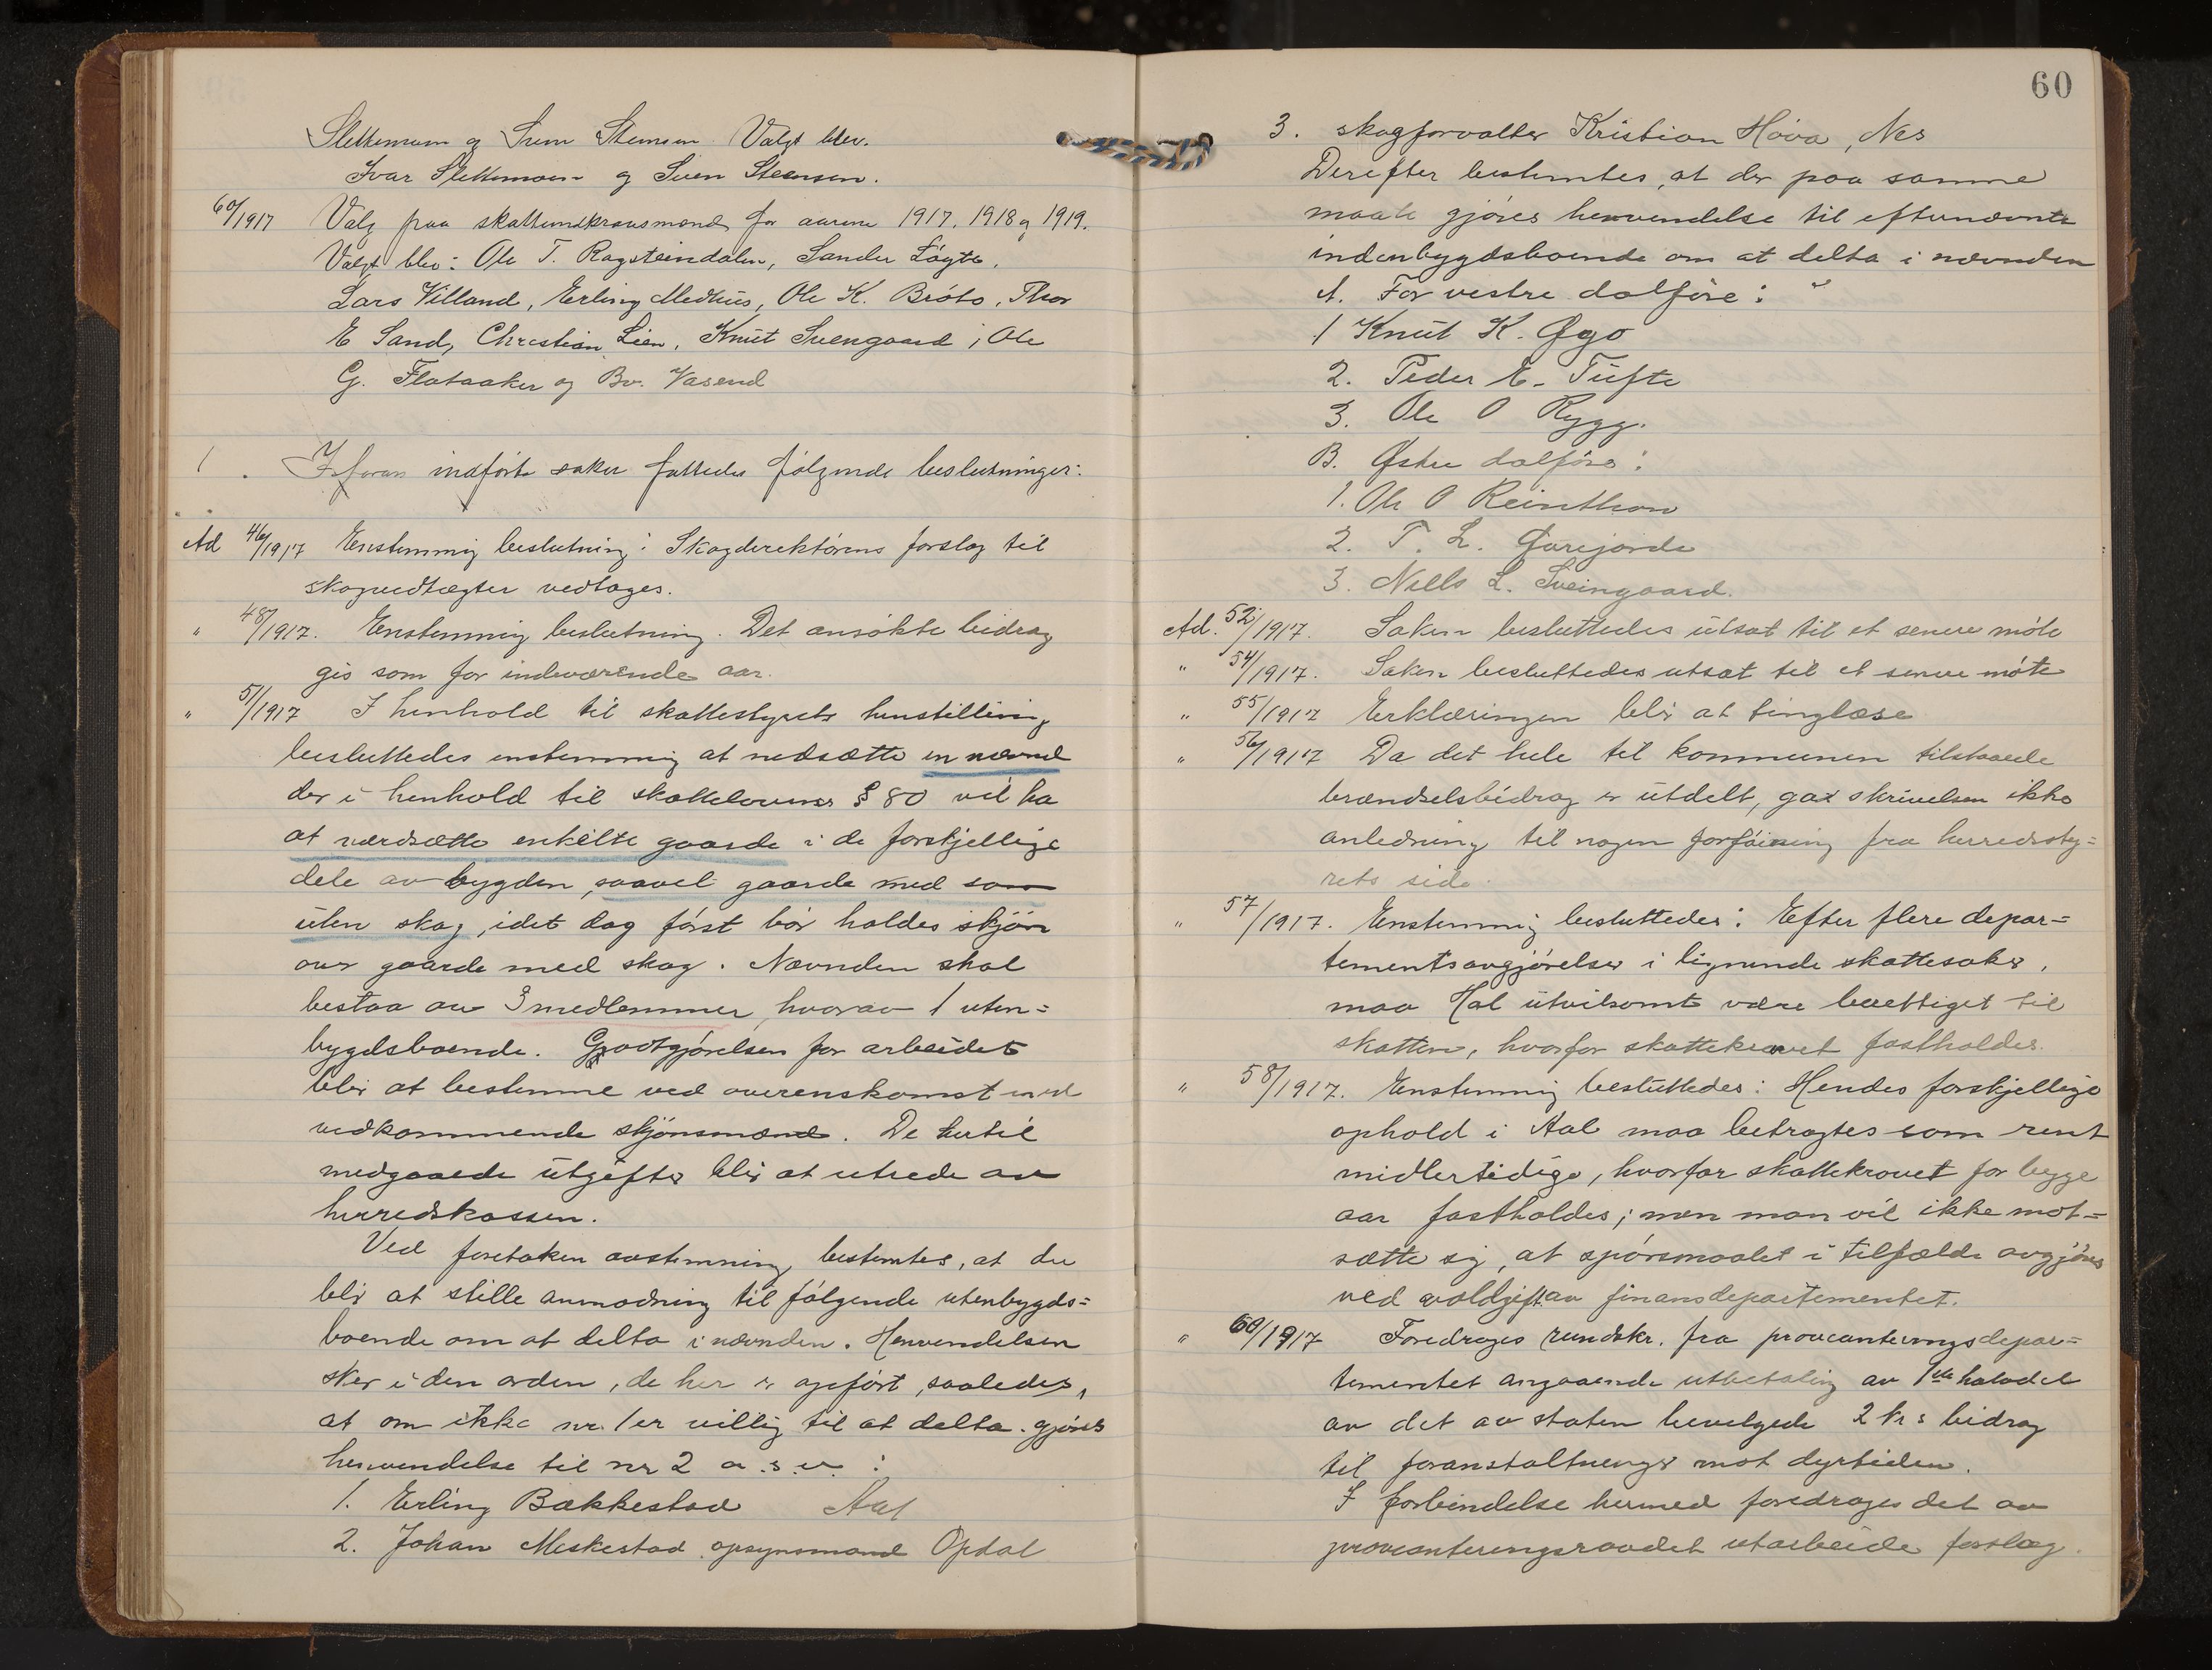 Slettemoen og Sven Stensen. Valgt blev.
Ivar Slettemoen og Sven Steensen.
60/1917 Valg paa skatteinnkrævsmænd for aarene 1917, 1918 og 1919.
Valgt blev: Ole T. Ragsteindalen, Sander Løgte,
Lars Villand, Erling Medhus, Ole K. Bråto, Thor
E Sand, Christian Lien, Knut Svengaard, Ole
G. Flataaker og Bv. Vasend
1. I foran indførte saker fattedes følgende beslutninger:
Ad 46/1917 Enstemmig beslutning: Skogdirektørens forslag til
skogvedtægter vedtages.
" 48/1917. Enstemmig beslutning. Det ansøkte bidrag
gis som for indeværende aar.
" 51/1917 I henhold til skattestyrets henstilling
besluttedes enstemmig at nedsætte en nævnd
der i henhold til skattelovens § 80 vil ha
at værdsætte enkelte gaarde i de forskjellige
dele av bygden, saavel gaarde med som
uten skog, idet dog først bør holdes skjøn
over gaarde med skog. Nævnden skal
bestaa av 3 medlemmer, hvorav 1 uten=
bygdsboende. Godtgjørelsen for arbeidet
blir at bestemme ved overenskomst med
vedkommende skjønsmænd. De hertil
medgaaede utgifter blir at utrede av
herredskassen.
Ved foretaken avstemning bestemtes, at der
blir at stille anmodning til følgende utenbygds=
boende om at delta i nævnden. Henvendelsen
sker i den orden, de her er opført, saaledes,
at om ikke nr. 1 er villig til at delta, gjøres
henvendelse til nr 2 o. s. v. :
1. Erling Bækkestad Aal
2. Johan Meskestad opsynsmand Opdal
60
3. skogforvalter Kristian Hova, Nes
Derefter bestemtes, at der paa samme
maate gjøres henvendelse til efternævnte
indenbygdsboende om at delta i nævnden
A. For vestre dalføre:
1 Knut K. Øyo
2. Peder E. Tufte
3. Ole O Rygg.
B. Østre dalføre:
1. Ole O Reinthon
2. T. L. Ørejorde
3. Niels L. Sveingaard.
Ad. 52/1917. Saken besluttedes utsat til et senere møte
" 54/1917. Saken besluttedes utsat til et senere møte
" 55/1917 Erklæringen blir at tinglæse
" 56/1917 Da det hele til kommunen tilstaaede
brændselsbidrag er utdelt, gav skrivelsen ikke
anledning til nogen forføining fra herredssty=
rets side.
" 57/1917. Enstemmig besluttedes: Efter flere depar=
tementsavgjørelser i lignende skattesaker,
maa Hol utvilsomt være berettiget til
skatten, hvorfor skattekravet fastholdes.
" 58/1917. Enstemmig besluttedes: Hendes forskjellige
ophold i Aal maa betragtes som rent
midlertidige, hvorfor skattekravet for begge
aar fastholdes; men man vil ikke mot=
sætte sig, at spørsmaalet i tilfælde avgjøres
ved voldgift av finansdepartementet.
" 60/1917 Foredroges rundskr. fra provianteringsdepar=
tementet angaaende utbetaling av 1ste halvdel
av det av staten bevilgede 2 kr s bidrag
til foranstaltninger mot dyrtiden.
I forbindelse hermed foredroges det av
provianteringsraadet utarbeide forslag.